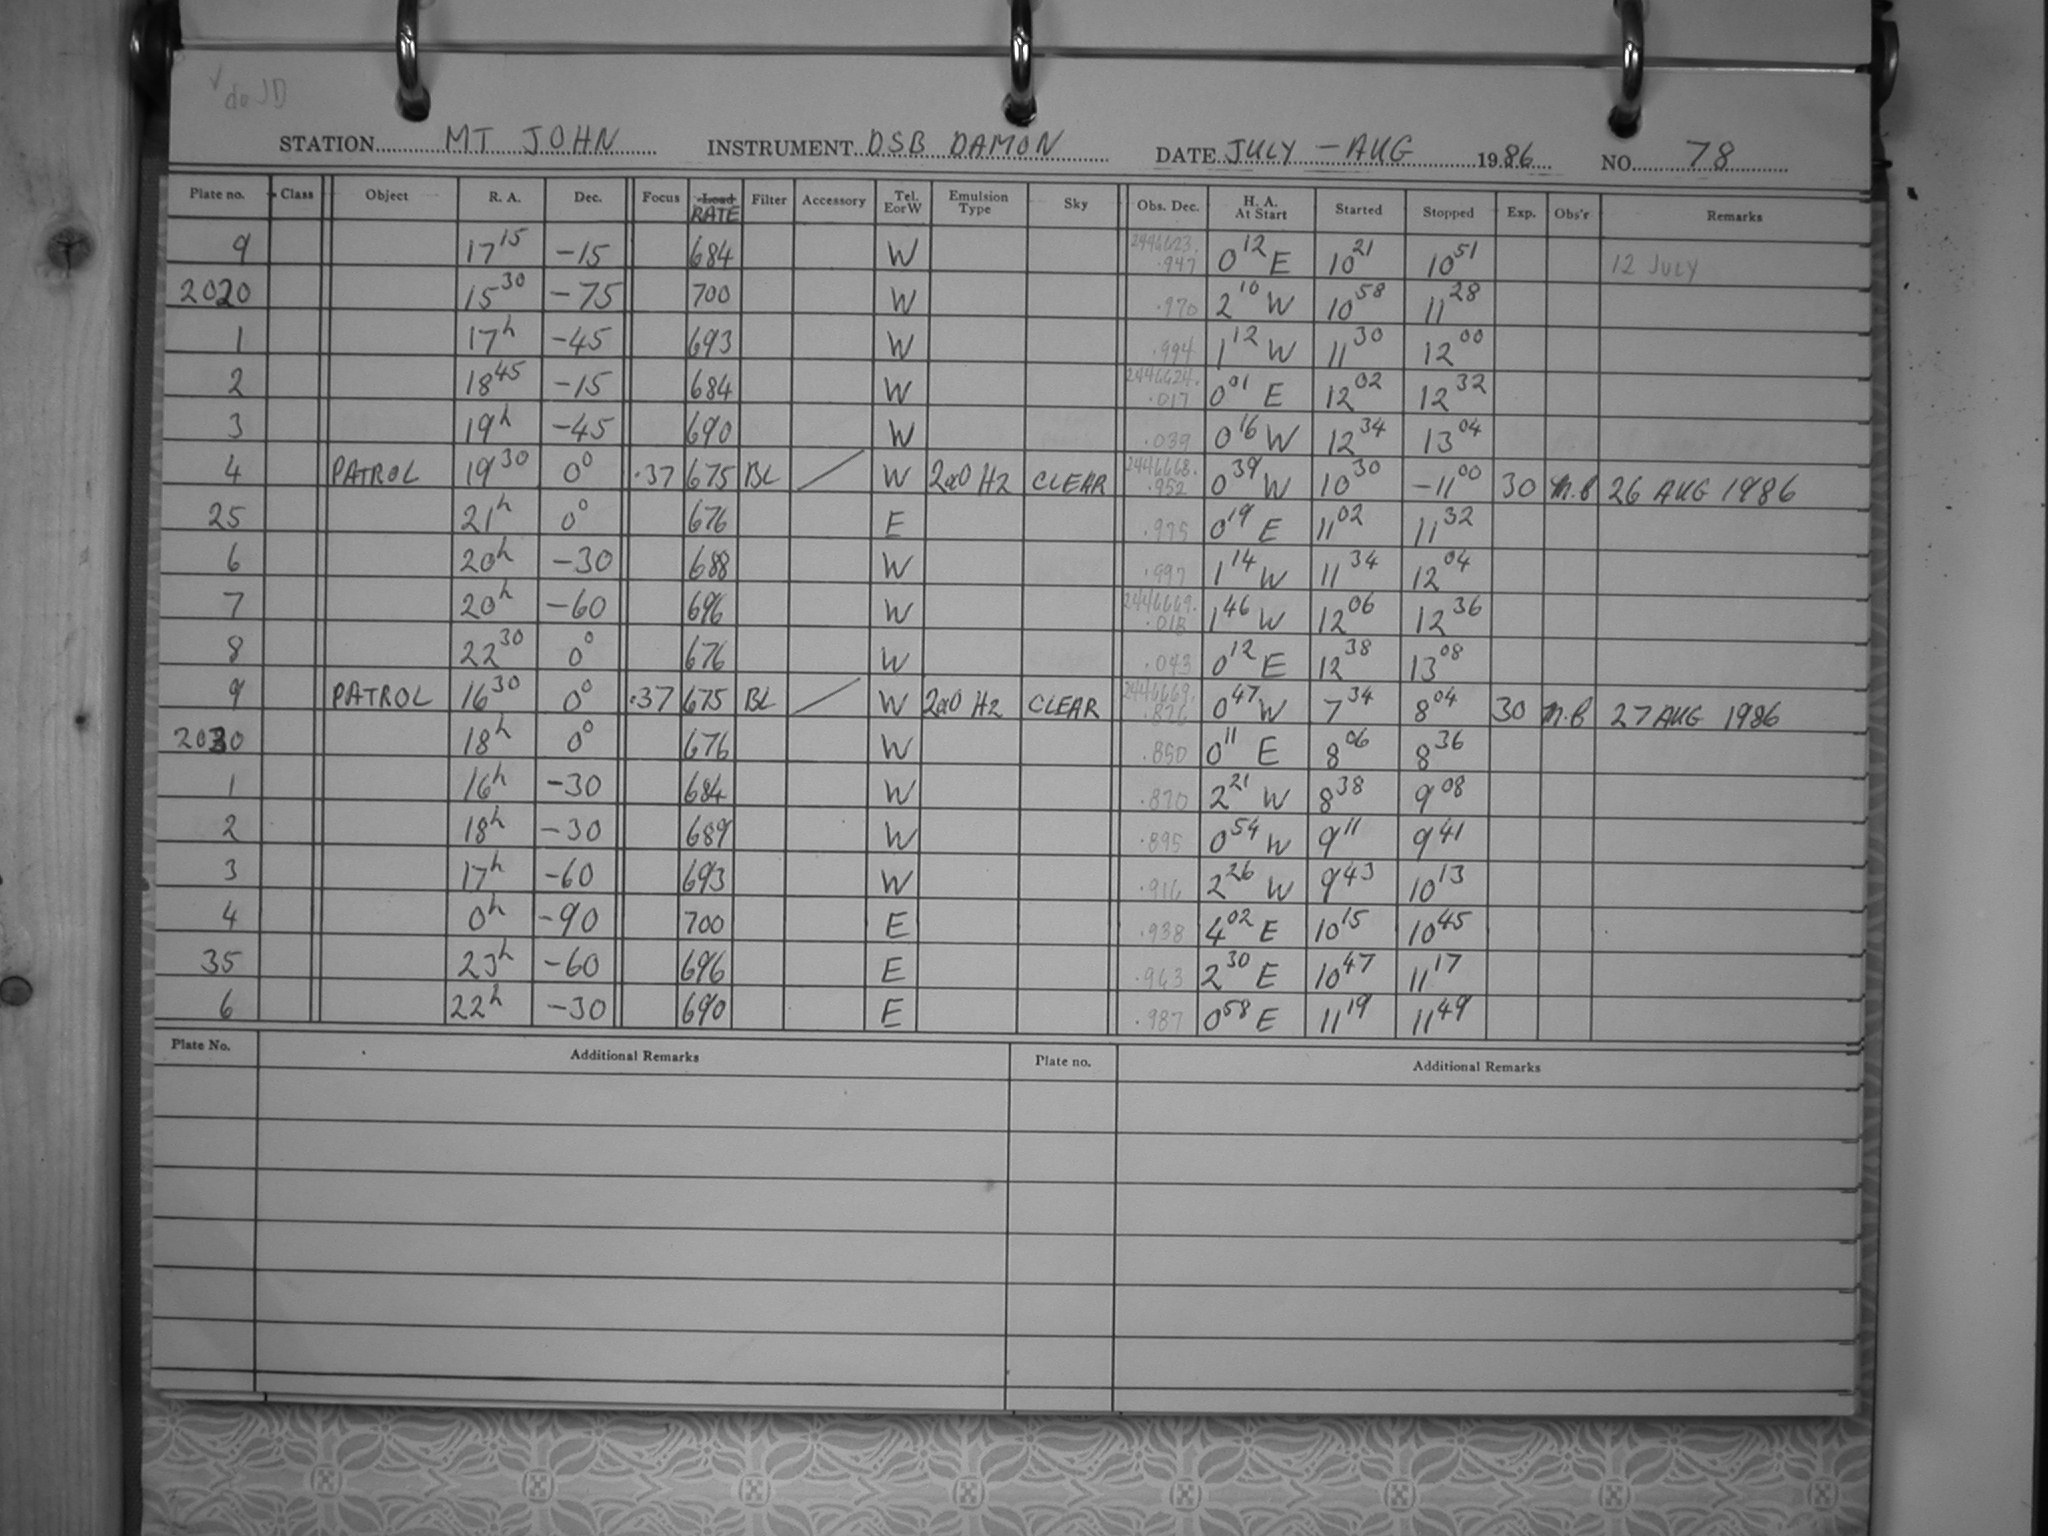 ✓ do JD
STATION MT JOHN INSTRUMENT DSB DAMON DATE JULY – AUG 1986 NO. 78
Plate no. Class Object R. A. Dec. Focus Load RATE Filter Accessory Tel. E or W Emulsion Type Sky Obs. Dec. H. A. At Start Started Stopped Exp. Obs'r Remarks
9 17 15 -15 684 W 2446623. .947 0 12 E 10 21 10 51 12 JULY
2020 15 30 -75 700 W .970 2 10 W 10 58 11 28
1 17h -45 693 W .994 1 12 W 11 30 12 00
2 18 45 -15 684 W 2446624. .017 0 01 E 12 02 12 32
3 19h -45 690 W .039 0 16 W 12 34 13 04
4 PATROL 19 30 0° .37 675 BL / W 2aO H2 CLEAR 2446668. .952 0 39 W 10 30 -11 00 30 M.B 26 AUG 1986
25 21h 0° 676 E .975 0 19 E 11 02 11 32
6 20h -30 688 W .997 1 14 W 11 34 12 04
7 20h -60 696 W 2446669. .018 1 46 W 12 06 12 36
8 22 30 0° 676 W .043 0 12 E 12 38 13 08
9 PATROL 16 30 0° .37 675 BL / W 2aO H2 CLEAR 2446669. 0 47 W 7 34 8 04 30 M.B 27 AUG 1986
2030 18h 0° 676 W .850 0 11 E 8 06 8 36
1 16h -30 684 W .870 2 21 W 8 38 9 08
2 18h -30 689 W .895 0 54 W 9 11 9 41
3 17h -60 693 W .916 2 26 W 9 43 10 13
4 0h -90 700 E .938 4 02 E 10 15 10 45
35 23h -60 696 E .963 2 30 E 10 47 11 17
6 22h -30 690 E .987 0 58 E 11 19 11 49
Plate No. Additional Remarks Plate no. Additional Remarks